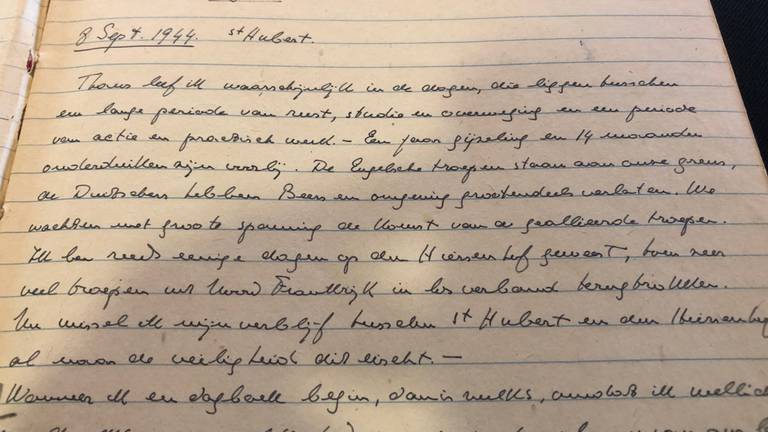 8 Sept. 1944. St Hubert.
Thans leef ik waarschijnlijk in de dagen, die liggen tusschen
een lange periode van rust, studie en overweging en een periode
van actie en practisch werk. — Een jaar gijzeling en 14 maanden
onderduiken zijn voorbij. De Engelsche troepen staan aan onze grens,
de Duitschers hebben Beers en omgeving grootendeels verlaten. We
wachten met groote spanning de komst van de geallieerde troepen.
Ik ben reeds eenige dagen op den Hiersenhof geweest, toen zeer
veel troepen uit Noord Frankrijk in los verband terugtrokken.
Nu wissel ik mijn verblijf tusschen St Hubert en den
al naar de veiligheid dit eischt. —
Wanneer ik een dagboek begin, dan is zulks, omdat ik